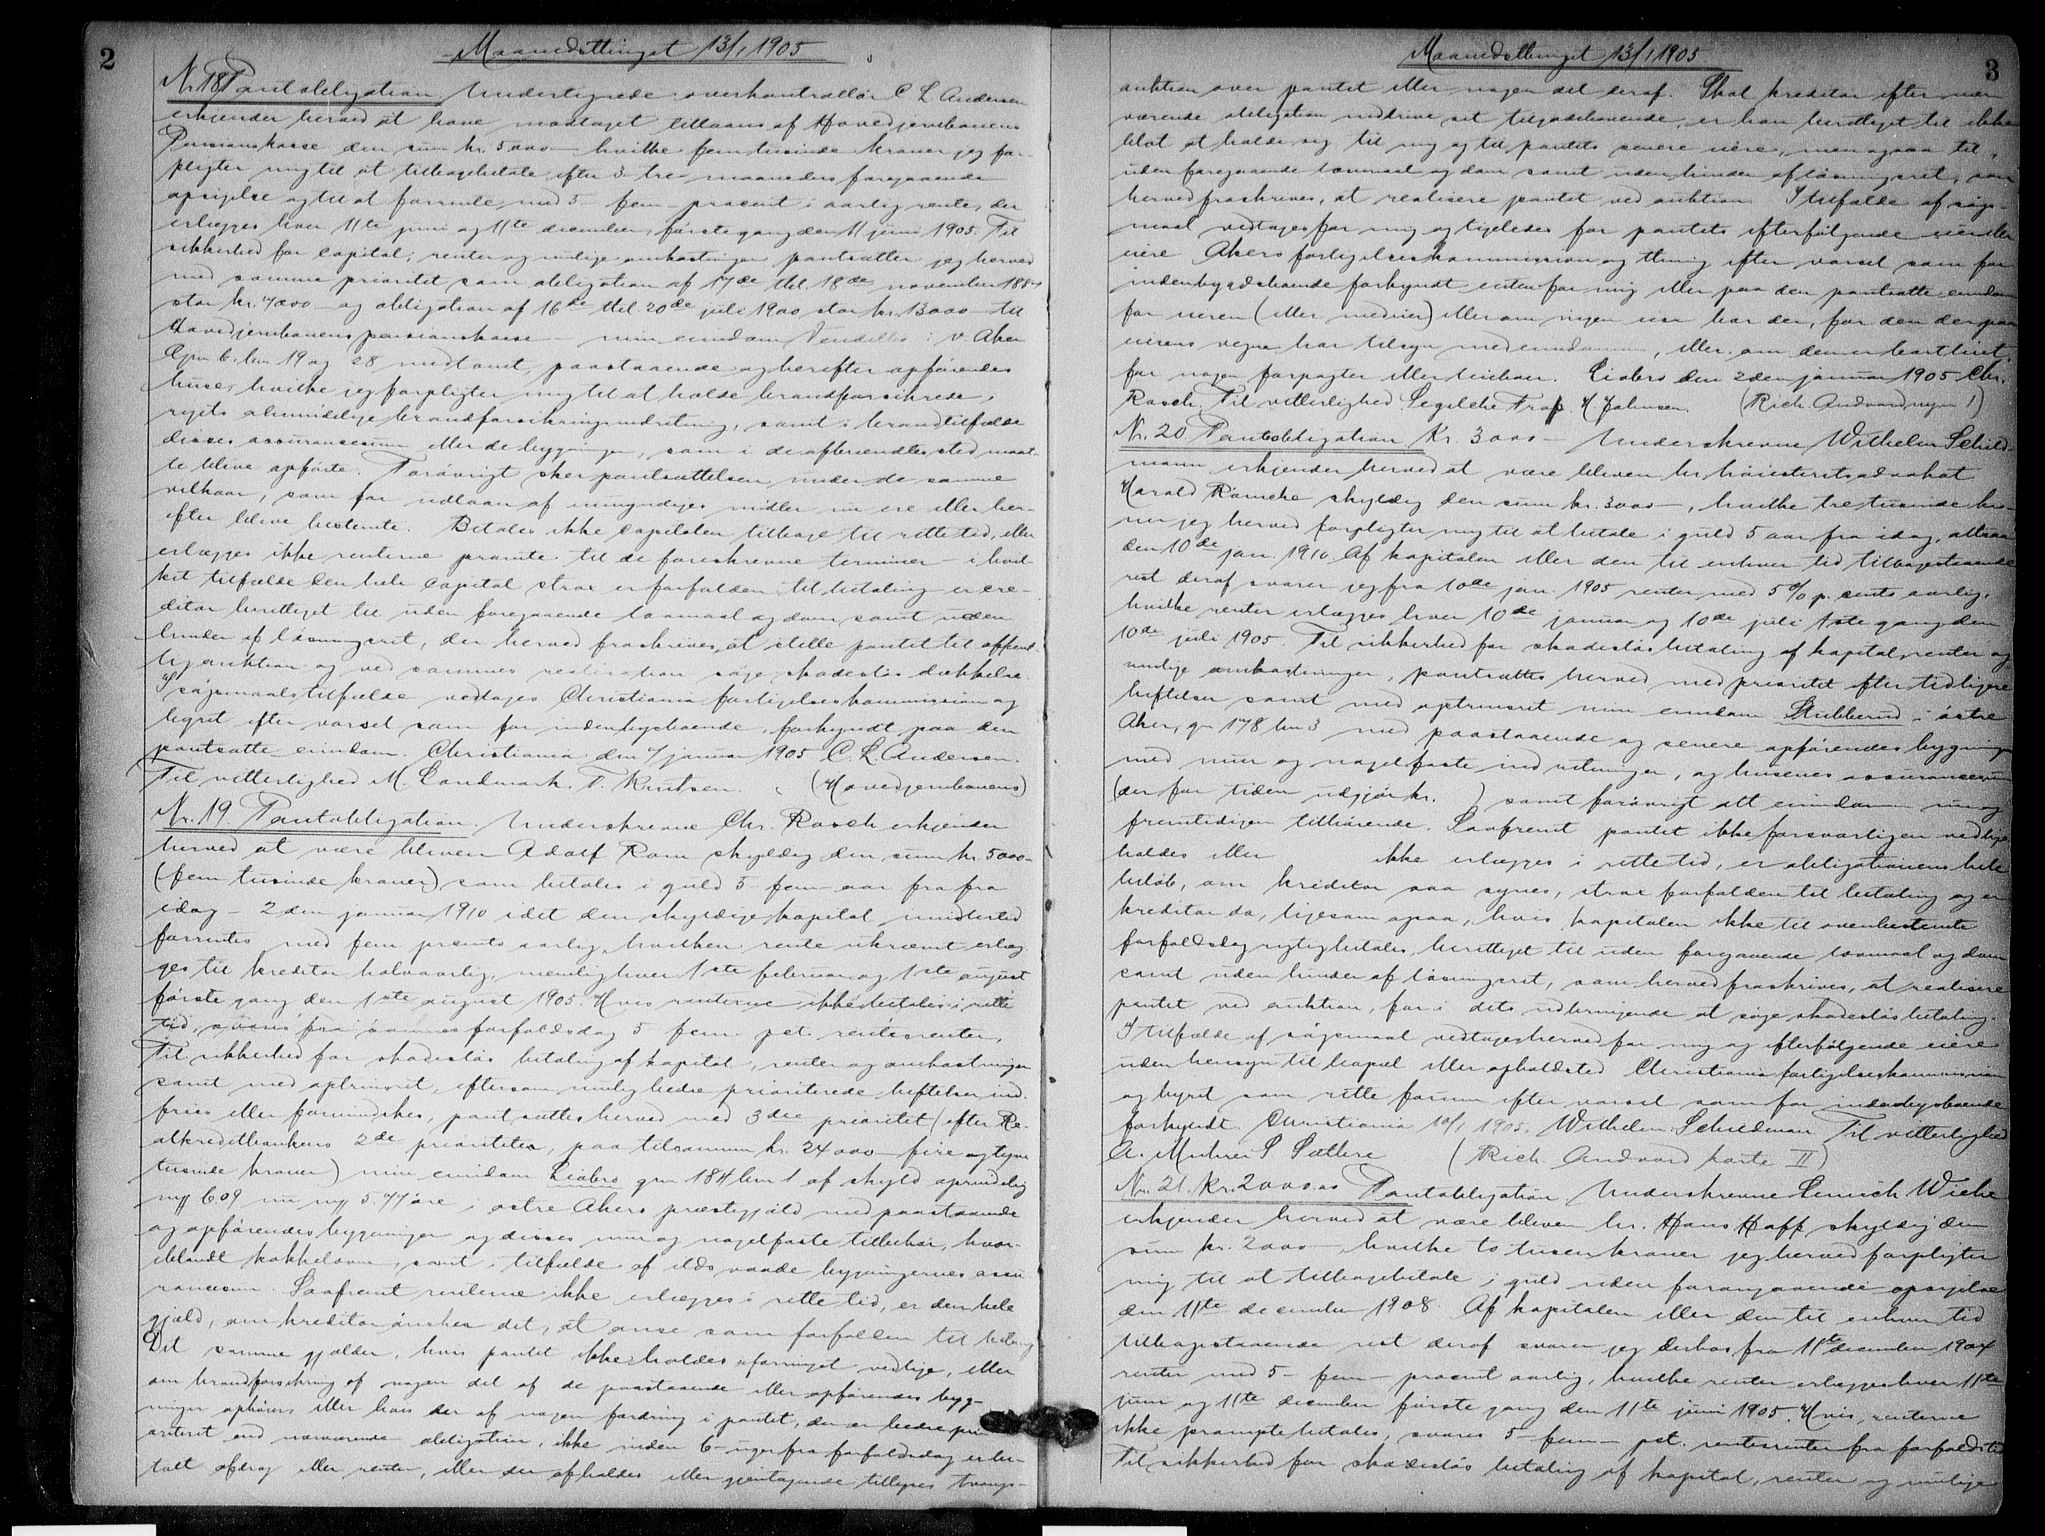 2
Maanedsthinget 13/1 1905
Nr. 18 Pantobligation. Undertegnede overkontrollør C L Andersen
erkjender herved at have modtaget tillaans af Hovedjernbanens
Pensionskasse den sum kr. 5000 — hvilke fem tusinde kroner jeg for-
pligter mig til at tilbagebetale efter 3 - tre - maaneders foregaaende
opsigelse og til at forrente med 5 - fem - procent i aarlig rente, der
erlægges hver 11te juni og 11te december, første gang den 11 juni 1905. Til
sikkerhed for capital, renter og mulige omkostninger pantsætter jeg herved
med samme prioritet som obligation af 17de thl. 18de november
stor kr. 7000 — og obligation af 16de thl 20de juli 1900 stor kr. 13000 — til
Hovedjernbanens pensionskasse — min eiendom i v. Aker
Gjn 6. bn 19 og 28 med tomt, paastaaende og herefter opførendes
huse, hvilke jeg forpligter mig til at holde brandforsikrede i
rigets almindelige brandforsikringsindretning, samt i brandtilfælde
disses assurancesum eller de bygninger, som i de afbrændtes sted maat-
te blive opførte. Forøvrigt sker pantsættelsen under de samme
vilkaar, som for udlaan af umyndiges midler nu ere eller her-
efter blive bestemte. Betales ikke capitalen tilbage til rette tid, eller
erlægges ikke renterne promte til de foreskrevne terminer — i hvil-
ket tilfælde den hele capital strax er forfalden til betaling — er cre-
ditor berettiget til uden foregaaende lovmaal og dom samt uden
hinder af løsningsret, der herved fraskrives, at stille pantet til offent-
lig auktion og ved sammes realisation søge skadesløs dækkelse.
I søgsmaalstilfælde vedtages Christiania forligelseskommission og
byret efter varsel som for indenbysboende, forkyndt paa den
pantsatte eiendom. Christiania den 7 januar 1905 C. L. Andersen.
Til vitterlighed M. Landmark. T. Knutsen. (Hovedjernbanens)
Nr. 19. Pantobligation. Underskrevne Chr. Rasch erkjender
herved at være bleven Adolf Ram skyldig den sum kr. 5000 -
(- fem tusinde kroner) som betales i guld 5 fem - aar fra fra
idag - 2 den januar 1910 idet den skyldige kapital imidlertid
forrentes med fem procent aarlig, hvilken rente ukrævet erlæg-
ges til kreditor halvaarlig, nemlig hver 1ste februar og 1ste august
første gang den 1ste august 1905. Hvis renterne ikke betales i rette
tid, svares fra sammes forfaldsdag 5 fem pct. rentesrenter.
Til sikkerhed for skadesløs betaling af kapital, renter og omkostninger
samt med optrinsret, eftersom mulig bedre prioriterede heftelser ind-
fries eller formindskes, pantsættes herved med 3die prioritet (efter Re-
alkreditbankens 2de prioriteter, paa tilsammen kr. 24000 - fire og tyve
tusinde kroner) min eiendom Liabro grn 184 bn 1 af skyld oprindelig
mj 609 nu mj 5.77 øre i østre Akers præstegjæld med paastaaende
og opførendes bygninger og disses mur og nagelfaste tilbehør, hvor-
iblandt kakkelovne, samt i tilfælde af ildsvaade bygningernes assu-
rancesum. Saafremt renterne ikke erlægges i rette tid, er den hele
gjæld, om kreditor ønsker det, at anse som forfalden til betaling
Det samme gjælder, hvis pantet ikke holdes uforringet vedlige, eller
om brandforsikring af nogen del af de paastaaende eller opførendes byg-
ninger ophører, eller hvis der af nogen fordring i pantet, der er bedre pri-
oriteret end nærværende obligation, ikke inden 6 - uger fra forfaldsdag er be-
talt afdrag eller renter, eller der afholdes eller gjentagende tillyses tvangs-
Maanedsthinget 13/1 1905
3
auktion over pantet eller nogen del deraf. Skal kreditor efter nær-
værende obligation inddrive sit tilgodehavende, er han berettiget til ikke
blot at holde sig til mig og til pantets senere eiere, men ogsaa til
uden foregaaende lovmaal og dom samt uden hinder af løsningsret, som
herved fraskrives, at realisere pantet ved auktion. I tilfælde af søgs-
maal vedtages for mig og ligeledes for pantets efterfølgende eier eller
eiere Akers forligelseskommission og thing efter varsel som for
indenbygdsboende forkyndt enten for mig eller paa den pantsatte eiendom
for eieren (eller medeier) eller om ingen eier bor der, for den der paa
eierens vegne har tilsyn med eiendommen, eller om den er bortleiet,
for nogen forpagter eller leieboer. Liabro den 2den januar 1905 Chr.
Rasch. Til vitterlighed H. Johnsen. (Rich. Andvord 1)
Nr. 20 Pantobligation Kr. 3000 - Underskrevne Wilhelm Schild-
mann erkjender herved at være bleven hr. høiesteretsadvokat
Harald Rømcke skyldig den sum kr. 3000 -, hvilke tre tusinde kro-
ner jeg herved forpligter mig til at betale i guld 5 aar fra idag, altsaa
den 10de jan 1910. Af kapitalen eller den til enhver tid tilbagestaaende
rest deraf svarer jeg fra 10de jan. 1905 renter med 5% p. cents aarlig,
hvilke renter erlægges hver 10de januar og 10de juli 1ste gang den
10de juli 1905. Til sikkerhed for skadesløs betaling af kapital, renter og
mulige omkostninger, pantsættes herved med prioritet efter tidligere
heftelser samt med optrinsret min eiendom Stubberud i østre
Aker, g 178 bn 3 med paastaaende og senere opførendes bygninger
med mur og nagelfaste indretninger, og husenes assurancesum
(der for tiden udgjør kr. ) samt forøvrigt alt eiendommen nu og
fremtidigen tilhørende. Saafremt pantet ikke forsvarligen vedlige-
holdes eller ikke erlægges i rette tid, er obligationens hele
beløb, om kreditor saa synes, strax forfalden til betaling og er
kreditor da, ligesom ogsaa, hvis kapitalen ikke til ovenbestemte
forfaldsdag rigtig betales, berettiget til uden foregaaende lovmaal og dom
samt uden hinder af løsningsret, som herved fraskrives, at realisere
pantet ved auktion, for i dets udbringende at søge skadesløs betaling.
I tilfælde af søgsmaal vedtages herved for mig og efterfølgende eiere
uden hensyn til bopæl eller opholdsted Christiania forligelseskommission
og byret som rette forum efter varsel som for indenbysboende
forkyndt. Christiania 10/1 1905. Wilhelm Schildman Til vitterlighed
A. S Sættere (Rich. Andvord karte II)
Nr. 21. kr. 2000.00 Pantobligation Underskrevne Wiebe
erkjender herved at være bleven hr. Hans Hoff skyldig den
sum kr. 2000 -, hvilke to tusen kroner jeg herved forpligter
mig til at tilbagebetale i guld uden forangaaende opsigelse
den 11te december 1908. Af kapitalen eller den til enhver tid
tilbagestaaende rest deraf svarer jeg derhos fra 11te december 1904
renter med 5 - fem - procent aarlig, hvilke renter erlægges hver 11te
juni og 11te december første gang den 11te juni 1905. Hvis renterne
ikke prompte betales, svares 5 - fem - pct. rentesrenter fra forfaldstid
Til sikkerhed for skadesløs betaling af kapital, renter og mulige